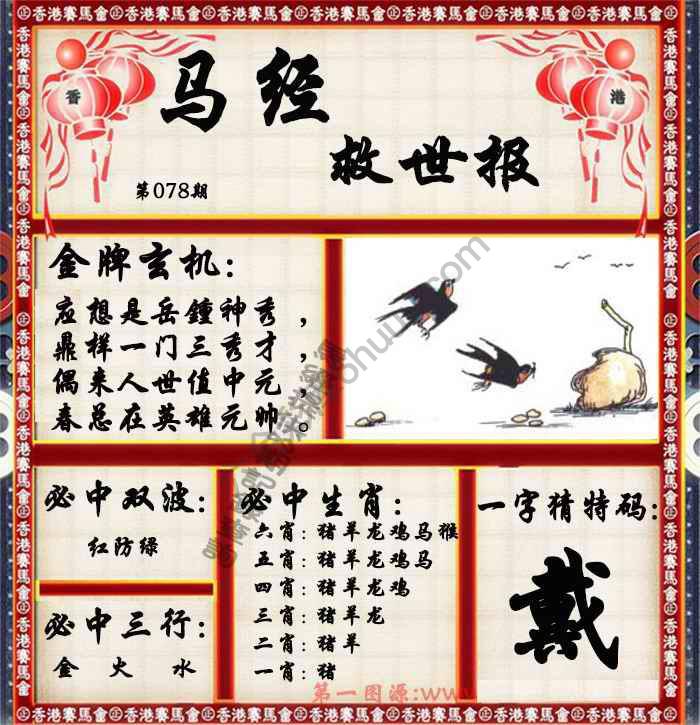 香港賽馬會
香
港
马经
救世报
第078期
金牌玄机:
应想是岳鍾神秀，
鼎样一门三秀才，
偶来人世值中元，
春总在英雄元帅。
必中双波:
红防绿
必中三行:
金 火 水
必中生肖:
六肖:猪羊龙鸡马猴
五肖:猪羊龙鸡马
四肖:猪羊龙鸡
三肖:猪羊龙
二肖:猪羊
一肖:猪
一字猜特码:
戴
第一图源:www